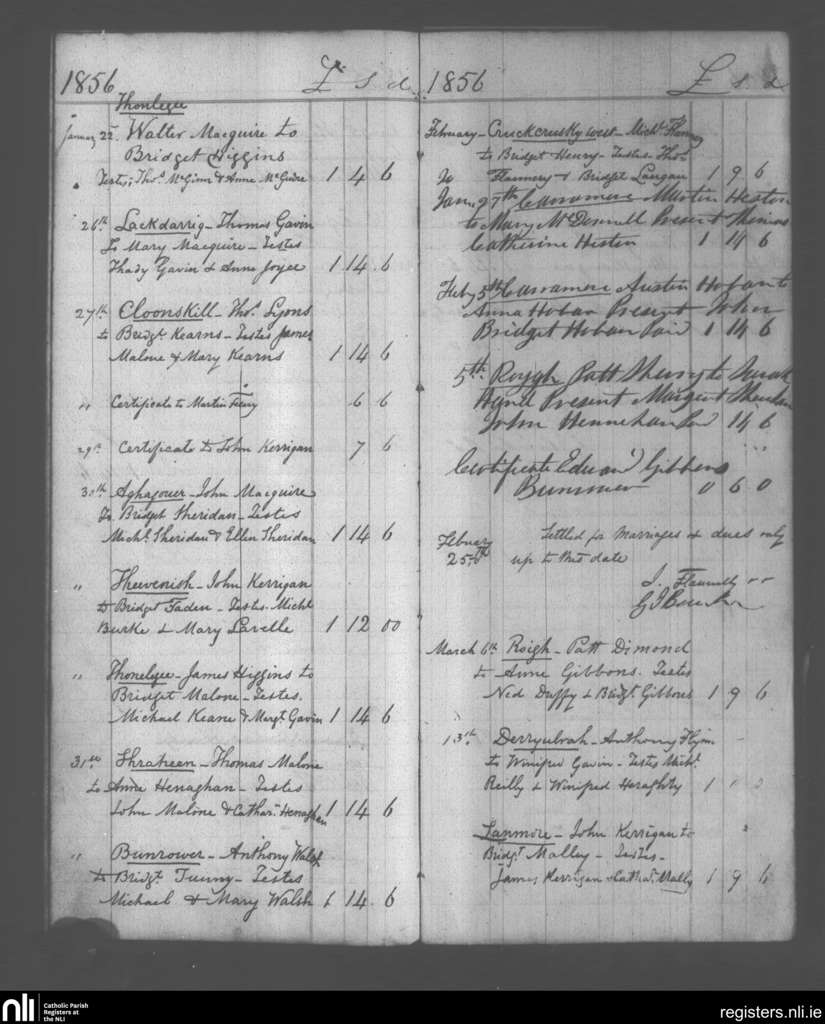 1856 £ s d
Thonlegee
January 22 Walter Macguire to
Bridget Higgins
Testes; Thos McGinn & Anne McGuire 1 4 6
26th Lackdarrig - Thomas Gavin
to Mary Macguire - Testes
Thady Gavin & Anne Joyce 1 14 6
27th Cloonskill - Thos Lyons
to Bridgt Kearns - Testes James
Malone & Mary Kearns 1 14 6
" Certificate to Martin 6 6
29th Certificate to John Kerrigan 7 6
30th Aghagouer - John Macguire
To Bridget Sheridan - Testes
Michl Sheridan & Ellen Sheridan 1 14 6
" Theevenish - John Kerrigan
to Bridget Faden - Testes Michl
Burke & Mary Lavelle 1 12 00
" Thonelgee - James Higgins to
Bridget Malone - Testes.
Michael Keane & Margt Gavin 1 14 6
31st Shraheen - Thomas Malone
to Anne Henaghan - Testes
John Malone & Cathar. Henaghan 1 14 6
" Bunrower - Anthony Walsh
to Bridgt Tunny - Testes
Michael & Mary Walsh 1 14 6
1856 £ s d
February - Cruckcrusky west - Michl
to Bridget Henry - Testes - Thos
Flannery & Bridget Langan 1 9 6
Jan. 27th Carramore Martin Heston
to Mary McDonnell Present Thomas
Catherine Hestin 1 14 6
Feby 5th Carramore Austin Hoban to
Anna Hoban Present John
Bridget Hoban Paid 1 14 6
5th Roygh Patt to Sarah
Present Margaret
John Hennehan Pd 14 6
Certificate Edward Gibbons
0 6 0
February
25th
Settled for marriages & dues only
up to this date
J. Flannelly
March 6th Roigh - Patt Dimond
to Anne Gibbons. Testes
Ned Duffy & Bridgt Gibbons 1 9 6
13th Derryulrah - Anthony Flynn
to Winifred Gavin - Testes Michl
Reilly & Winifred Heraghty 1
Lanmore - John Kerrigan to
Bridgt Malley - Testes -
James Kerrigan & Cathar. Mally 1 9 6
nli
Catholic Parish
Registers at
the NLI
registers.nli.ie